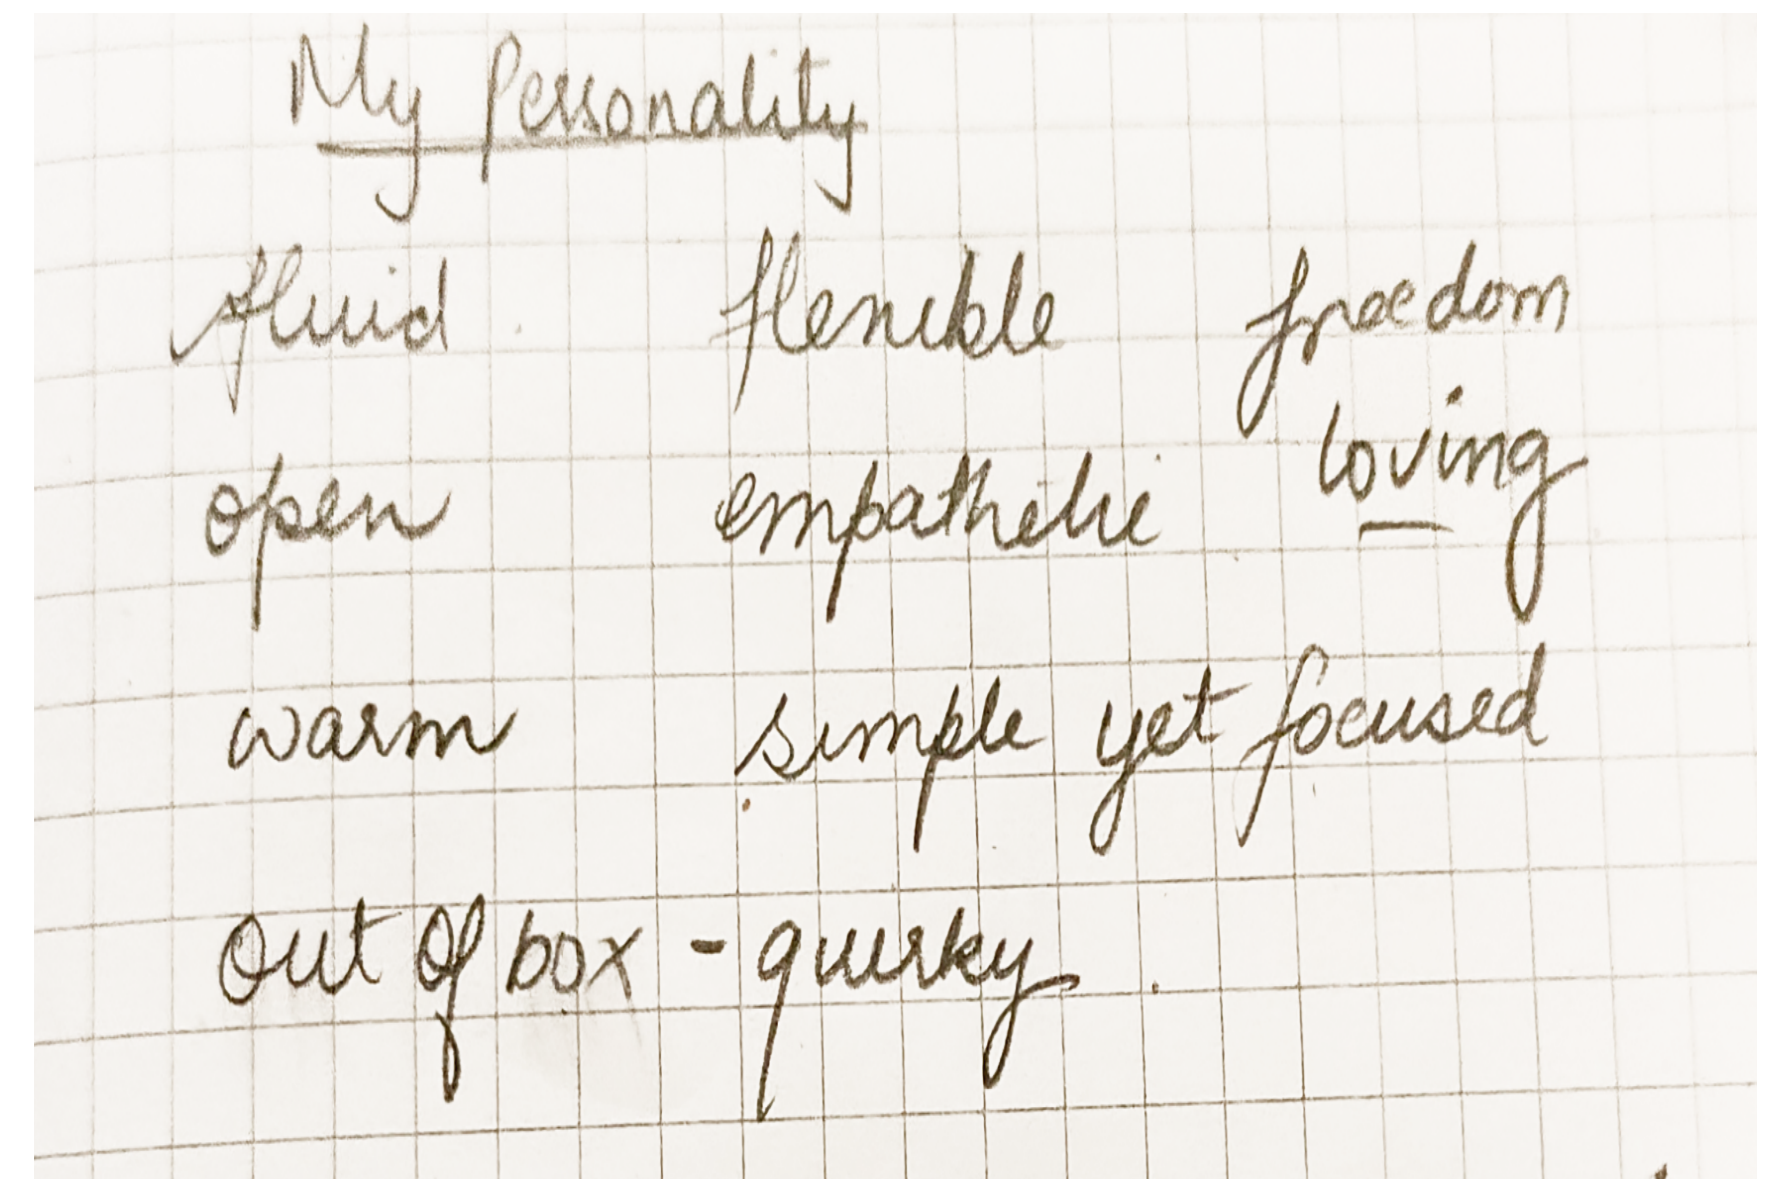 My Personality
fluid flexible freedom
loving
open empathetic
warm simple yet focused
out of box - quirky.